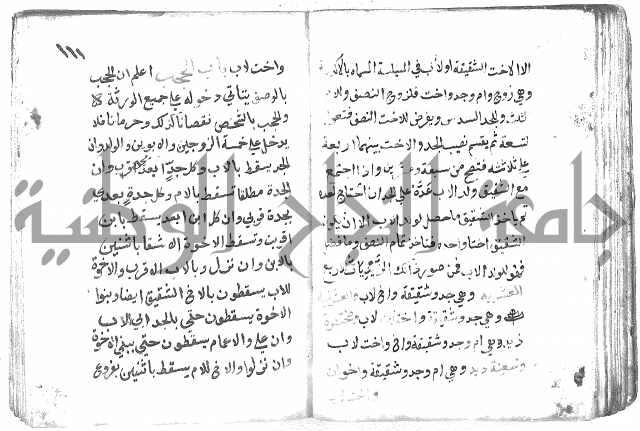 الا الاخت الشقيقة او لاب في المسألة المسماه بالاكدرية
وهي زوج وام وجد واخت فللزوج النصف وللام
الثلث وللجد السدس ويفرض للاخت النصف فتعول
لتسعة ثم يقسم نصيب الجد والاخت بينهما اربعة
على ثلاثة فتصح من سبعة وعشرين واذا اجتمع
مع الشقيق ولد الاب عده على الجد ان احتاج لعده
ثم ياخذ الشقيق ما حصل لولد الاب الا ان يكون
الشقيق اختا واحدة فتاخذ تمام النصف وما فضل
فهو لولد الاب فمن صور ذلك الزيديات الاربع
العشرية وهي جد وشقيقة واخ لاب والعشرينية
وهي جد وشقيقة واختان لاب ومختصرة
زيد وهي ام وجد وشقيقة واخ واخت لاب
وتسعينية زيد وهي ام وجد وشقيقة واخوان
واخت لاب
١١١
واخت لاب باب الحجب اعلم ان الحجب
بالوصف يتاتي دخوله على جميع الورثة
والحجب بالشخص نقصانا كذلك وحرمانا فلا
يدخل على خمسة الزوجين والابوين والولد وان
الجد يسقط بالاب وكل جد ابعد بجد اقرب وان
الجدة مطلقا تسقط بالام وكل جدة بعدى
بجدة قربى وان كل ابن ابعد يسقط بابن
اقرب وتسقط الاخوة الاشقا باثنين
بالابن وان نزل وبالاب الاقرب والاخوة
للاب يسقطون بالاخ الشقيق ايضا وبنوا
الاخوة يسقطون حتى بالجد ابي الاب
وان علا والاعمام يسقطون حتى ببني الاخوة
وان نزلوا والاخ للام يسقط باثنين بفروع
جامعة النجاح الوطنية